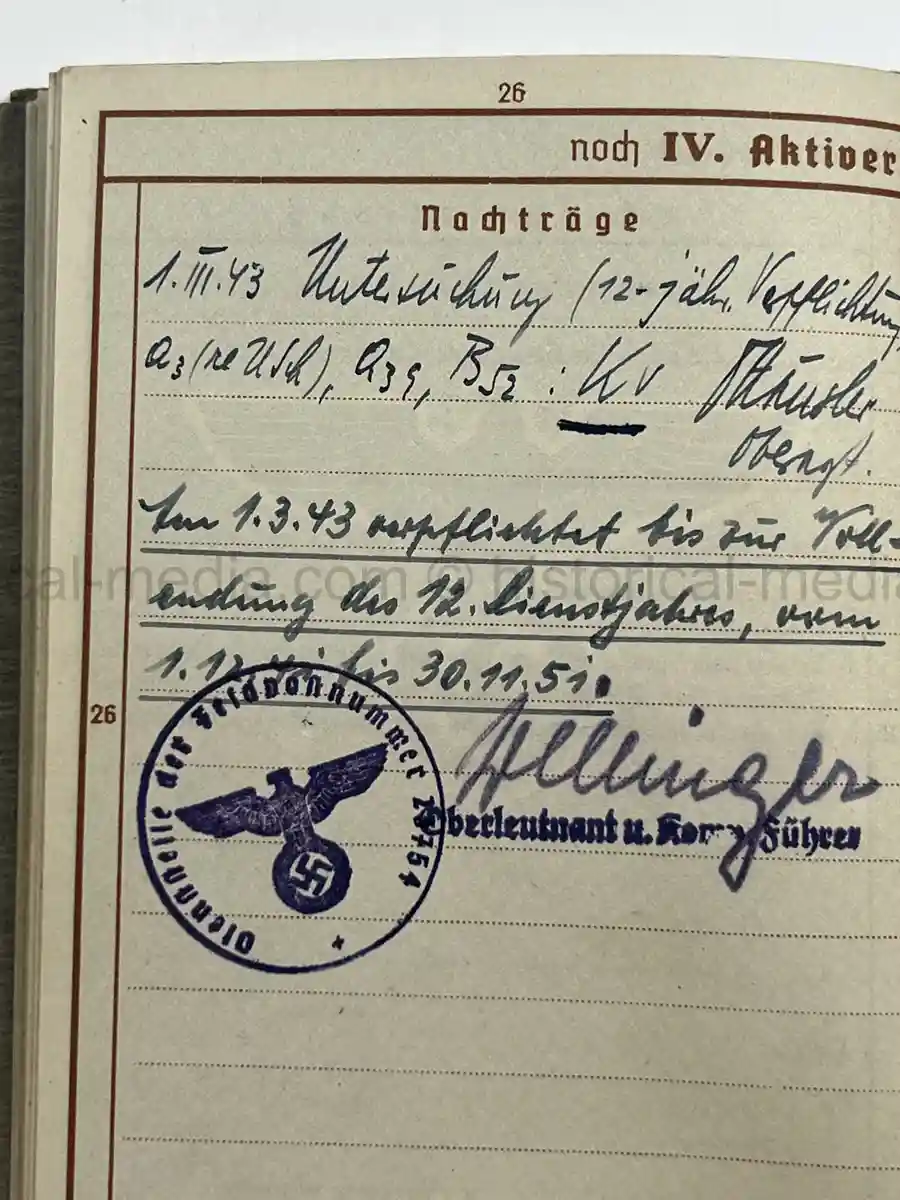 26
noch IV. Aktiver
Nachträge
1.III.43 Untersuchung (12-jähr. Verpflichtung
a3 (re Ush), a39, B52 : Kv
Am 1.3.43 verpflichtet bis zur Voll-
endung des 12. Dienstjahres, vom
1.12. bis 30.11.51.
26
Dienststelle der Feldpostnummer
Oberleutnant u. Komp. Führer
cal-media.com © historical-media